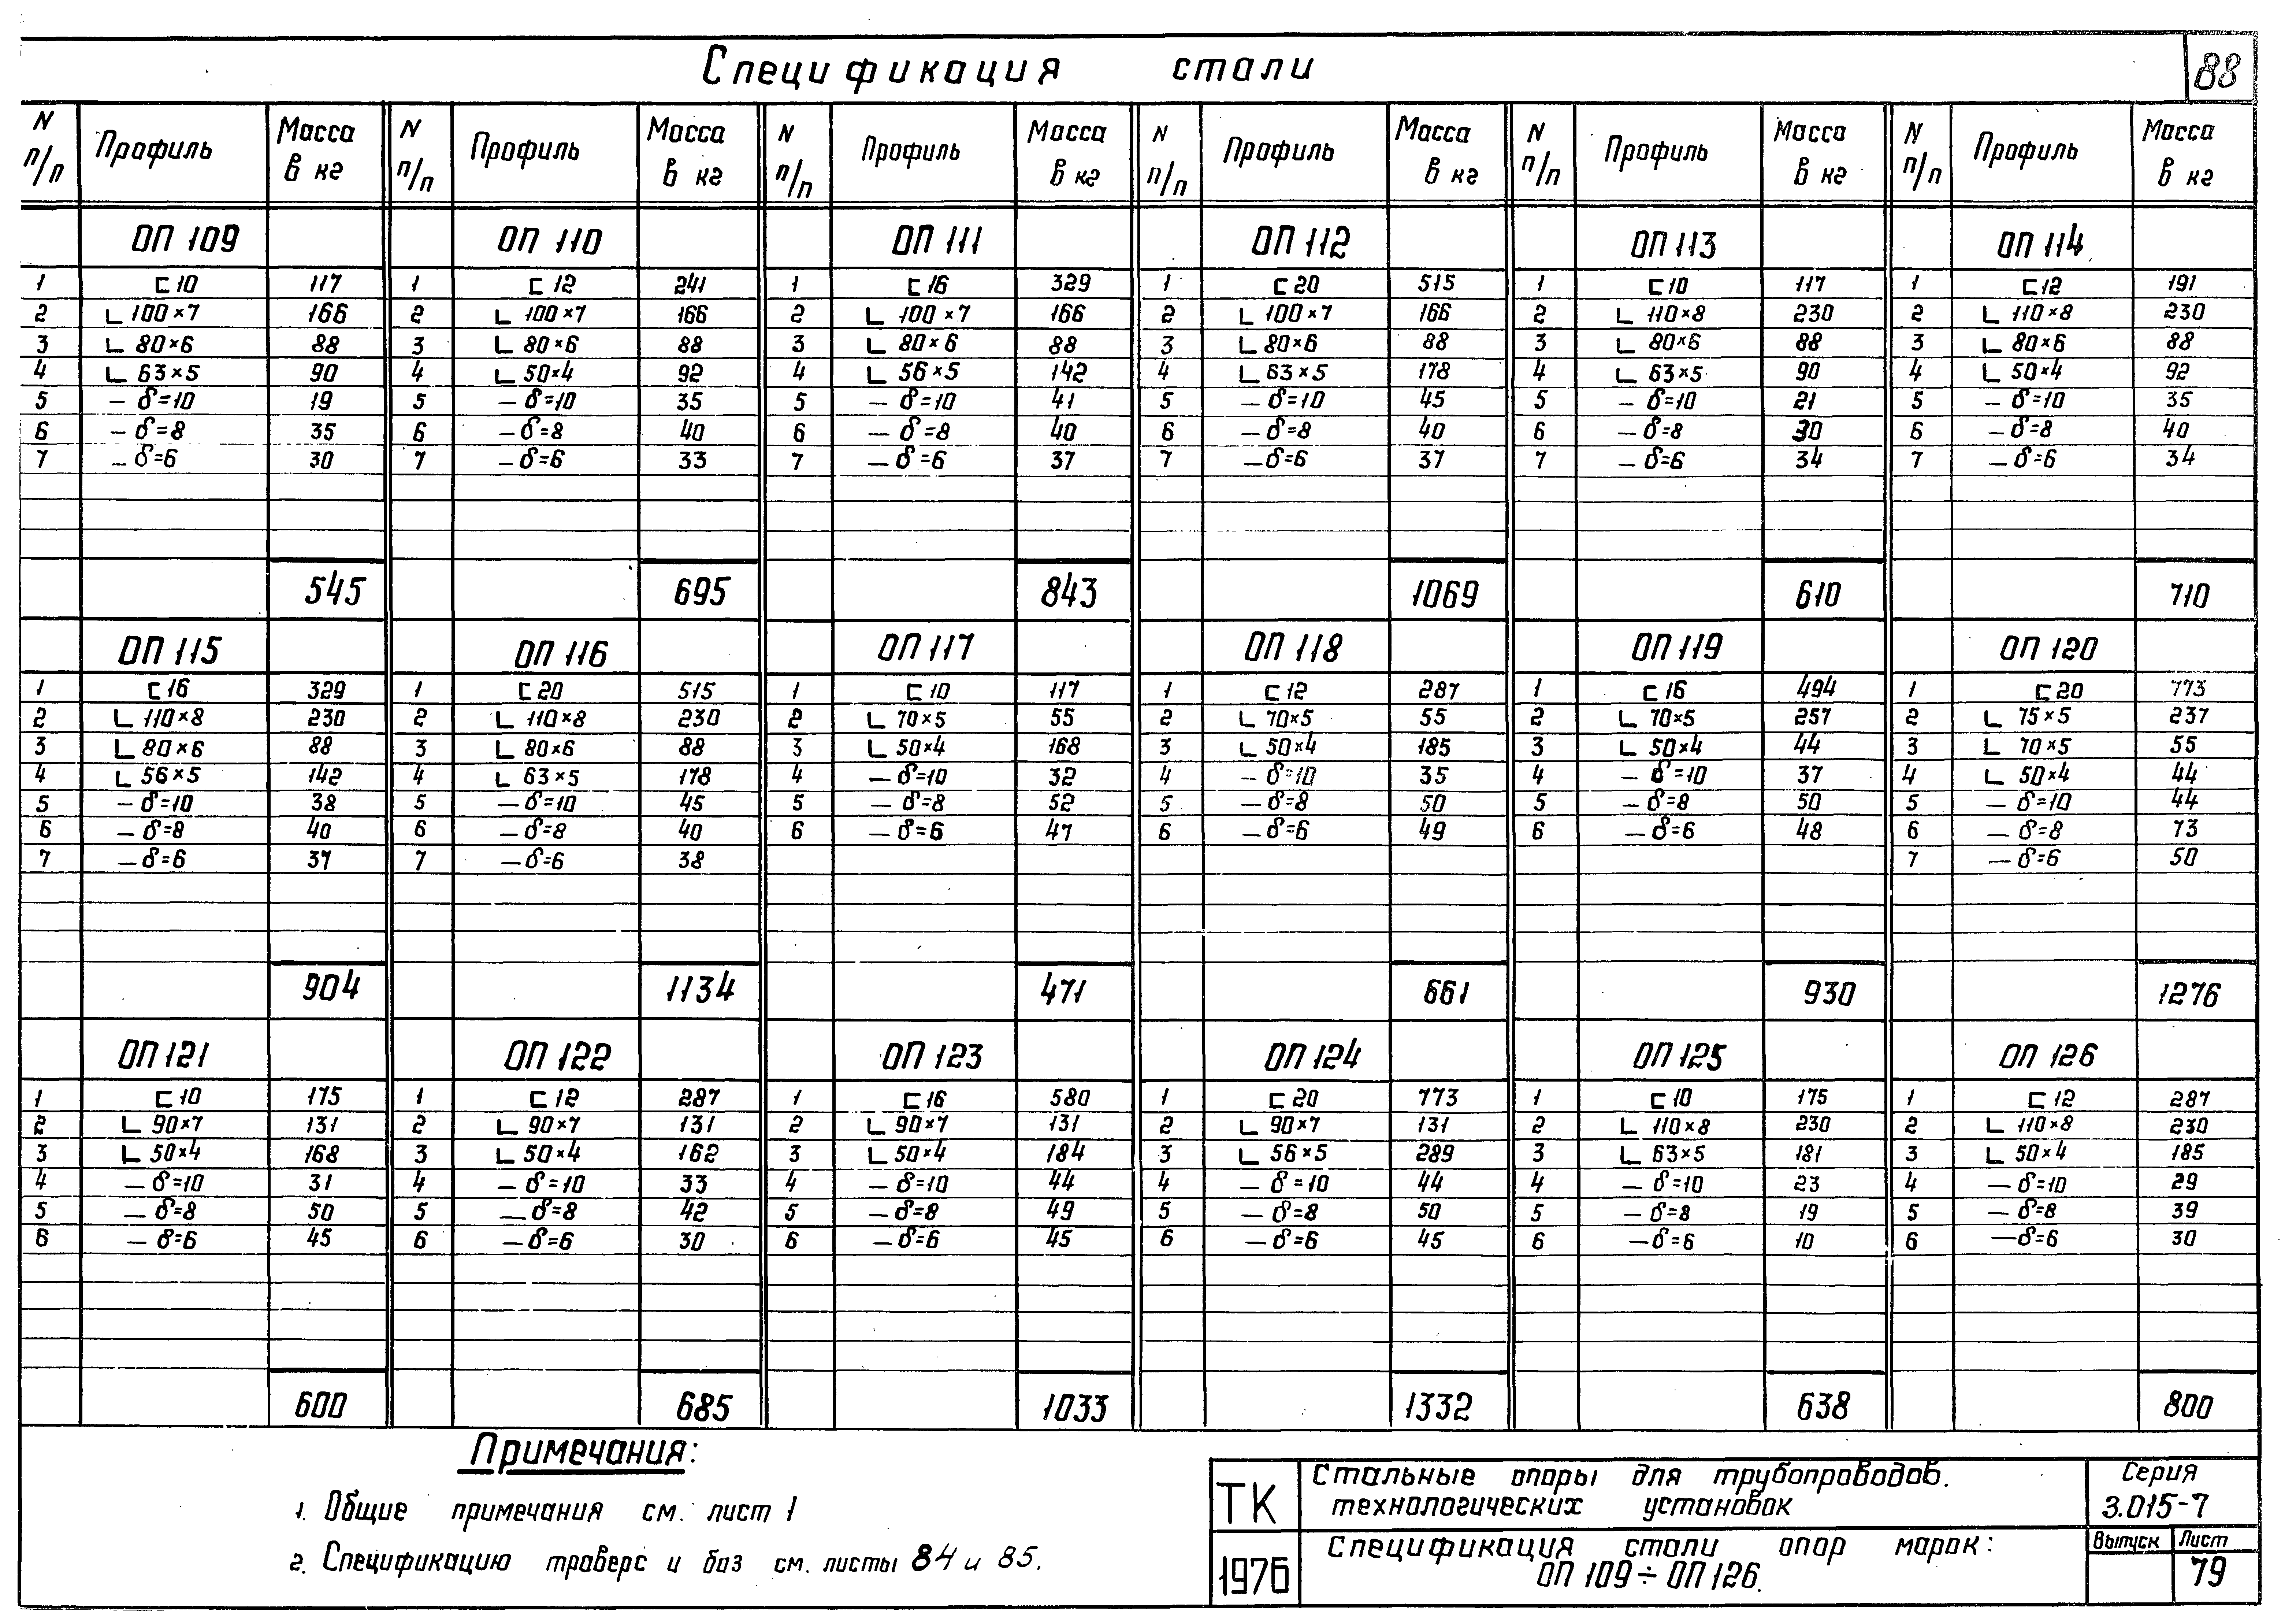 Спецификация стали
88
N п/п Профиль Масса в кг N п/п Профиль Масса в кг N п/п Профиль Масса в кг N п/п Профиль Масса в кг N п/п Профиль Масса в кг N п/п Профиль Масса в кг
ОП 109 ОП 110 ОП 111 ОП 112 ОП 113 ОП 114
1 ⊏ 10 117 1 ⊏ 12 241 1 ⊏ 16 329 1 ⊏ 20 515 1 ⊏ 10 117 1 ⊏ 12 191
2 ∟ 100×7 166 2 ∟ 100×7 166 2 ∟ 100×7 166 2 ∟ 100×7 166 2 ∟ 110×8 230 2 ∟ 110×8 230
3 ∟ 80×6 88 3 ∟ 80×6 88 3 ∟ 80×6 88 3 ∟ 80×6 88 3 ∟ 80×6 88 3 ∟ 80×6 88
4 ∟ 63×5 90 4 ∟ 50×4 92 4 ∟ 56×5 142 4 ∟ 63×5 178 4 ∟ 63×5 90 4 ∟ 50×4 92
5 – δ=10 19 5 – δ=10 35 5 – δ=10 41 5 – δ=10 45 5 – δ=10 21 5 – δ=10 35
6 – δ=8 35 6 – δ=8 40 6 – δ=8 40 6 – δ=8 40 6 – δ=8 30 6 – δ=8 40
7 – δ=6 30 7 – δ=6 33 7 – δ=6 37 7 – δ=6 37 7 – δ=6 34 7 – δ=6 34
545 695 843 1069 610 710
ОП 115 ОП 116 ОП 117 ОП 118 ОП 119 ОП 120
1 ⊏ 16 329 1 ⊏ 20 515 1 ⊏ 10 117 1 ⊏ 12 287 1 ⊏ 16 494 1 ⊏ 20 773
2 ∟ 110×8 230 2 ∟ 110×8 230 2 ∟ 70×5 55 2 ∟ 70×5 55 2 ∟ 70×5 257 2 ∟ 75×5 237
3 ∟ 80×6 88 3 ∟ 80×6 88 3 ∟ 50×4 168 3 ∟ 50×4 185 3 ∟ 50×4 44 3 ∟ 70×5 55
4 ∟ 56×5 142 4 ∟ 63×5 178 4 – δ=10 32 4 – δ=10 35 4 – δ=10 37 4 ∟ 50×4 44
5 – δ=10 38 5 – δ=10 45 5 – δ=8 52 5 – δ=8 50 5 – δ=8 50 5 – δ=10 44
6 – δ=8 40 6 – δ=8 40 6 – δ=6 47 6 – δ=6 49 6 – δ=6 48 6 – δ=8 73
7 – δ=6 37 7 – δ=6 38 7 – δ=6 50
904 1134 471 661 930 1276
ОП 121 ОП 122 ОП 123 ОП 124 ОП 125 ОП 126
1 ⊏ 10 175 1 ⊏ 12 287 1 ⊏ 16 580 1 ⊏ 20 773 1 ⊏ 10 175 1 ⊏ 12 287
2 ∟ 90×7 131 2 ∟ 90×7 131 2 ∟ 90×7 131 2 ∟ 90×7 131 2 ∟ 110×8 230 2 ∟ 110×8 230
3 ∟ 50×4 168 3 ∟ 50×4 162 3 ∟ 50×4 184 3 ∟ 56×5 289 3 ∟ 63×5 181 3 ∟ 50×4 185
4 – δ=10 31 4 – δ=10 33 4 – δ=10 44 4 – δ=10 44 4 – δ=10 23 4 – δ=10 29
5 – δ=8 50 5 – δ=8 42 5 – δ=8 49 5 – δ=8 50 5 – δ=8 19 5 – δ=8 39
6 – δ=6 45 6 – δ=6 30 6 – δ=6 45 6 – δ=6 45 6 – δ=6 10 6 – δ=6 30
600 685 1033 1332 638 800
Примечания:
1. Общие примечания см. лист 1
2. Спецификацию траверс и баз см. листы 84 и 85.
ТК
1976
Стальные опоры для трубопроводов.
технологических установок
Спецификация стали опор марок:
ОП 109 ÷ ОП 126.
Серия
3.015-7
Выпуск Лист
79